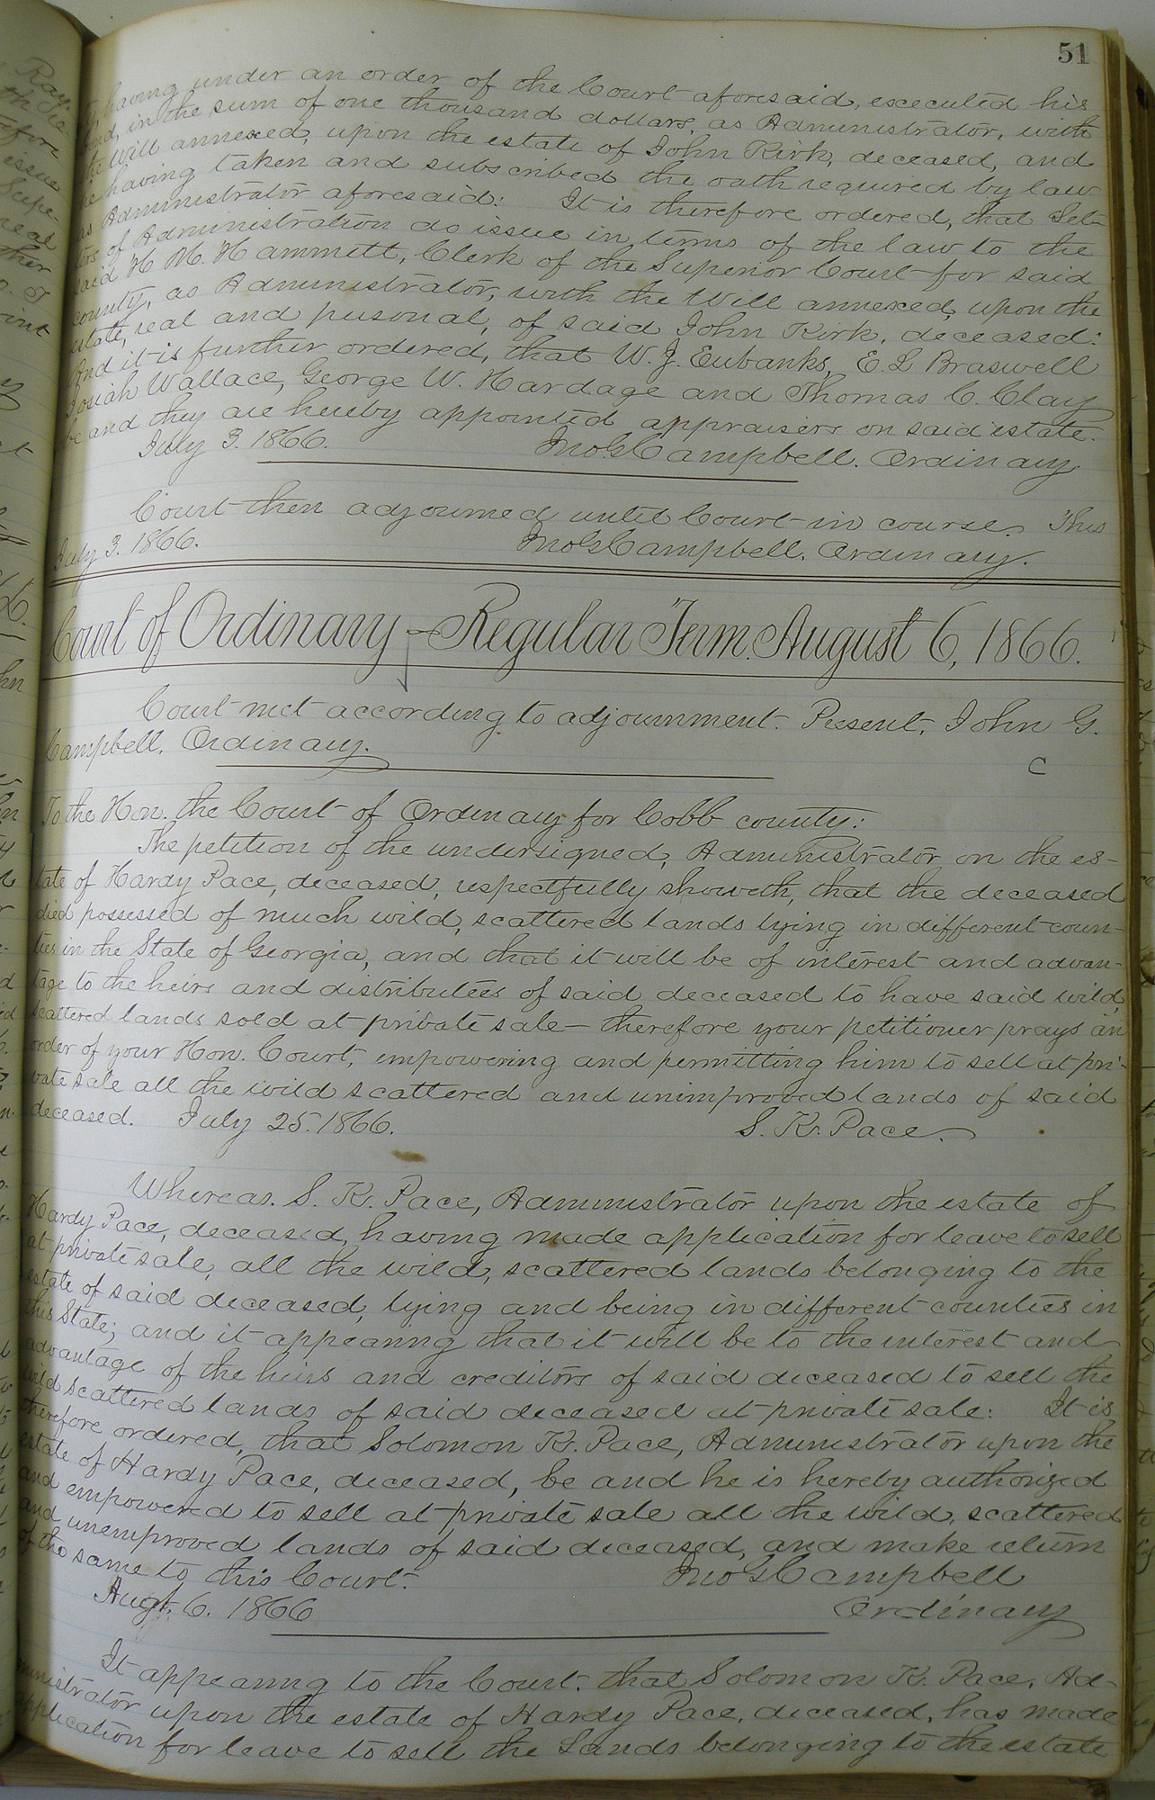 51
having under an order of the Court aforesaid, executed his
bond, in the sum of one thousand dollars, as Administrator, with
the Will annexed, upon the estate of John Kirk, deceased, and
he having taken and subscribed the oath required by law
as Administrator aforesaid: It is therefore ordered, that Let-
ters of Administration do issue in terms of the law to the
said H. M. Hammett, Clerk of the Superior Court for said
county, as Administrator, with the Will annexed, upon the
estate, real and personal, of said John Kirk, deceased:
And it is further ordered, that W. J. Eubanks, E. L Braswell
Josiah Wallace, George W. Hardage and Thomas C. Clay
be and they are hereby appointed appraisers on said estate.
July 3. 1866. Jno G Campbell. Ordinary
Court then adjourned until Court in course. This
July 3. 1866. Jno G Campbell. Ordinary.
Court of Ordinary – Regular Term. August 6, 1866.
Court met according to adjournment. Present, John G.
Campbell. Ordinary. C
To the Hon. the Court of Ordinary for Cobb county:
The petition of the undersigned, Administrator on the es-
tate of Hardy Pace, deceased, respectfully showeth, that the deceased
died possessed of much wild, scattered lands lying in different coun-
ties in the State of Georgia, and that it will be of interest and advan-
tage to the heirs and distributees of said deceased to have said wild,
scattered lands sold at private sale – therefore your petitioner prays an
order of your Hon. Court, empowering and permitting him to sell at pri-
vate sale all the wild scattered and unimproved lands of said
deceased. July 25. 1866. S. K. Pace.
Whereas. S. K. Pace, Administrator upon the estate of
Hardy Pace, deceased, having made application for leave to sell
at private sale, all the wild, scattered lands belonging to the
estate of said deceased, lying and being in different counties in
this State; and it appearing that it will be to the interest and
advantage of the heirs and creditors of said deceased to sell the
wild scattered lands of said deceased at private sale: It is
therefore ordered, that Solomon K. Pace, Administrator upon the
estate of Hardy Pace, deceased, be and he is hereby authorized
and empowered to sell at private sale all the wild, scattered
and unemproved lands of said deceased, and make return
of the same to this Court. Jno G Campbell
Augt. 6. 1866 Ordinary
It appearing to the Court. that Solomon K. Pace, Ad-
ministrator upon the estate of Hardy Pace, deceased, has made
application for leave to sell the Lands belonging to the estate